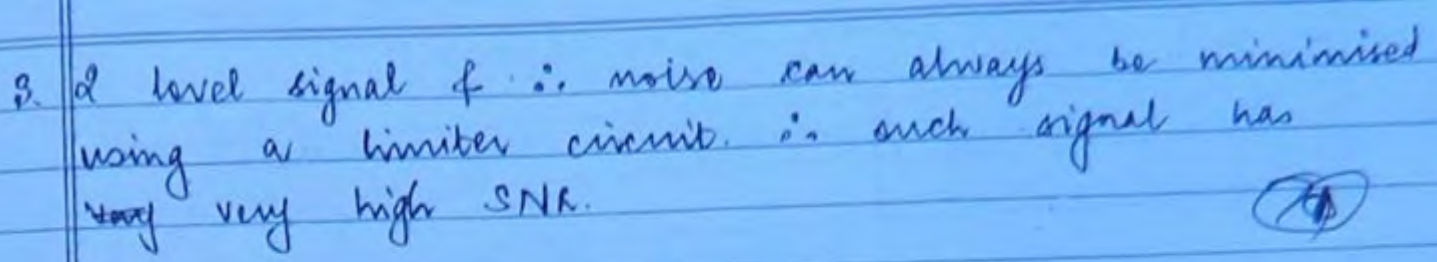 3. 2 level signal & ∴ noise can always be minimised
using a limiter circuit. ∴ such signal has
very very high SNR.